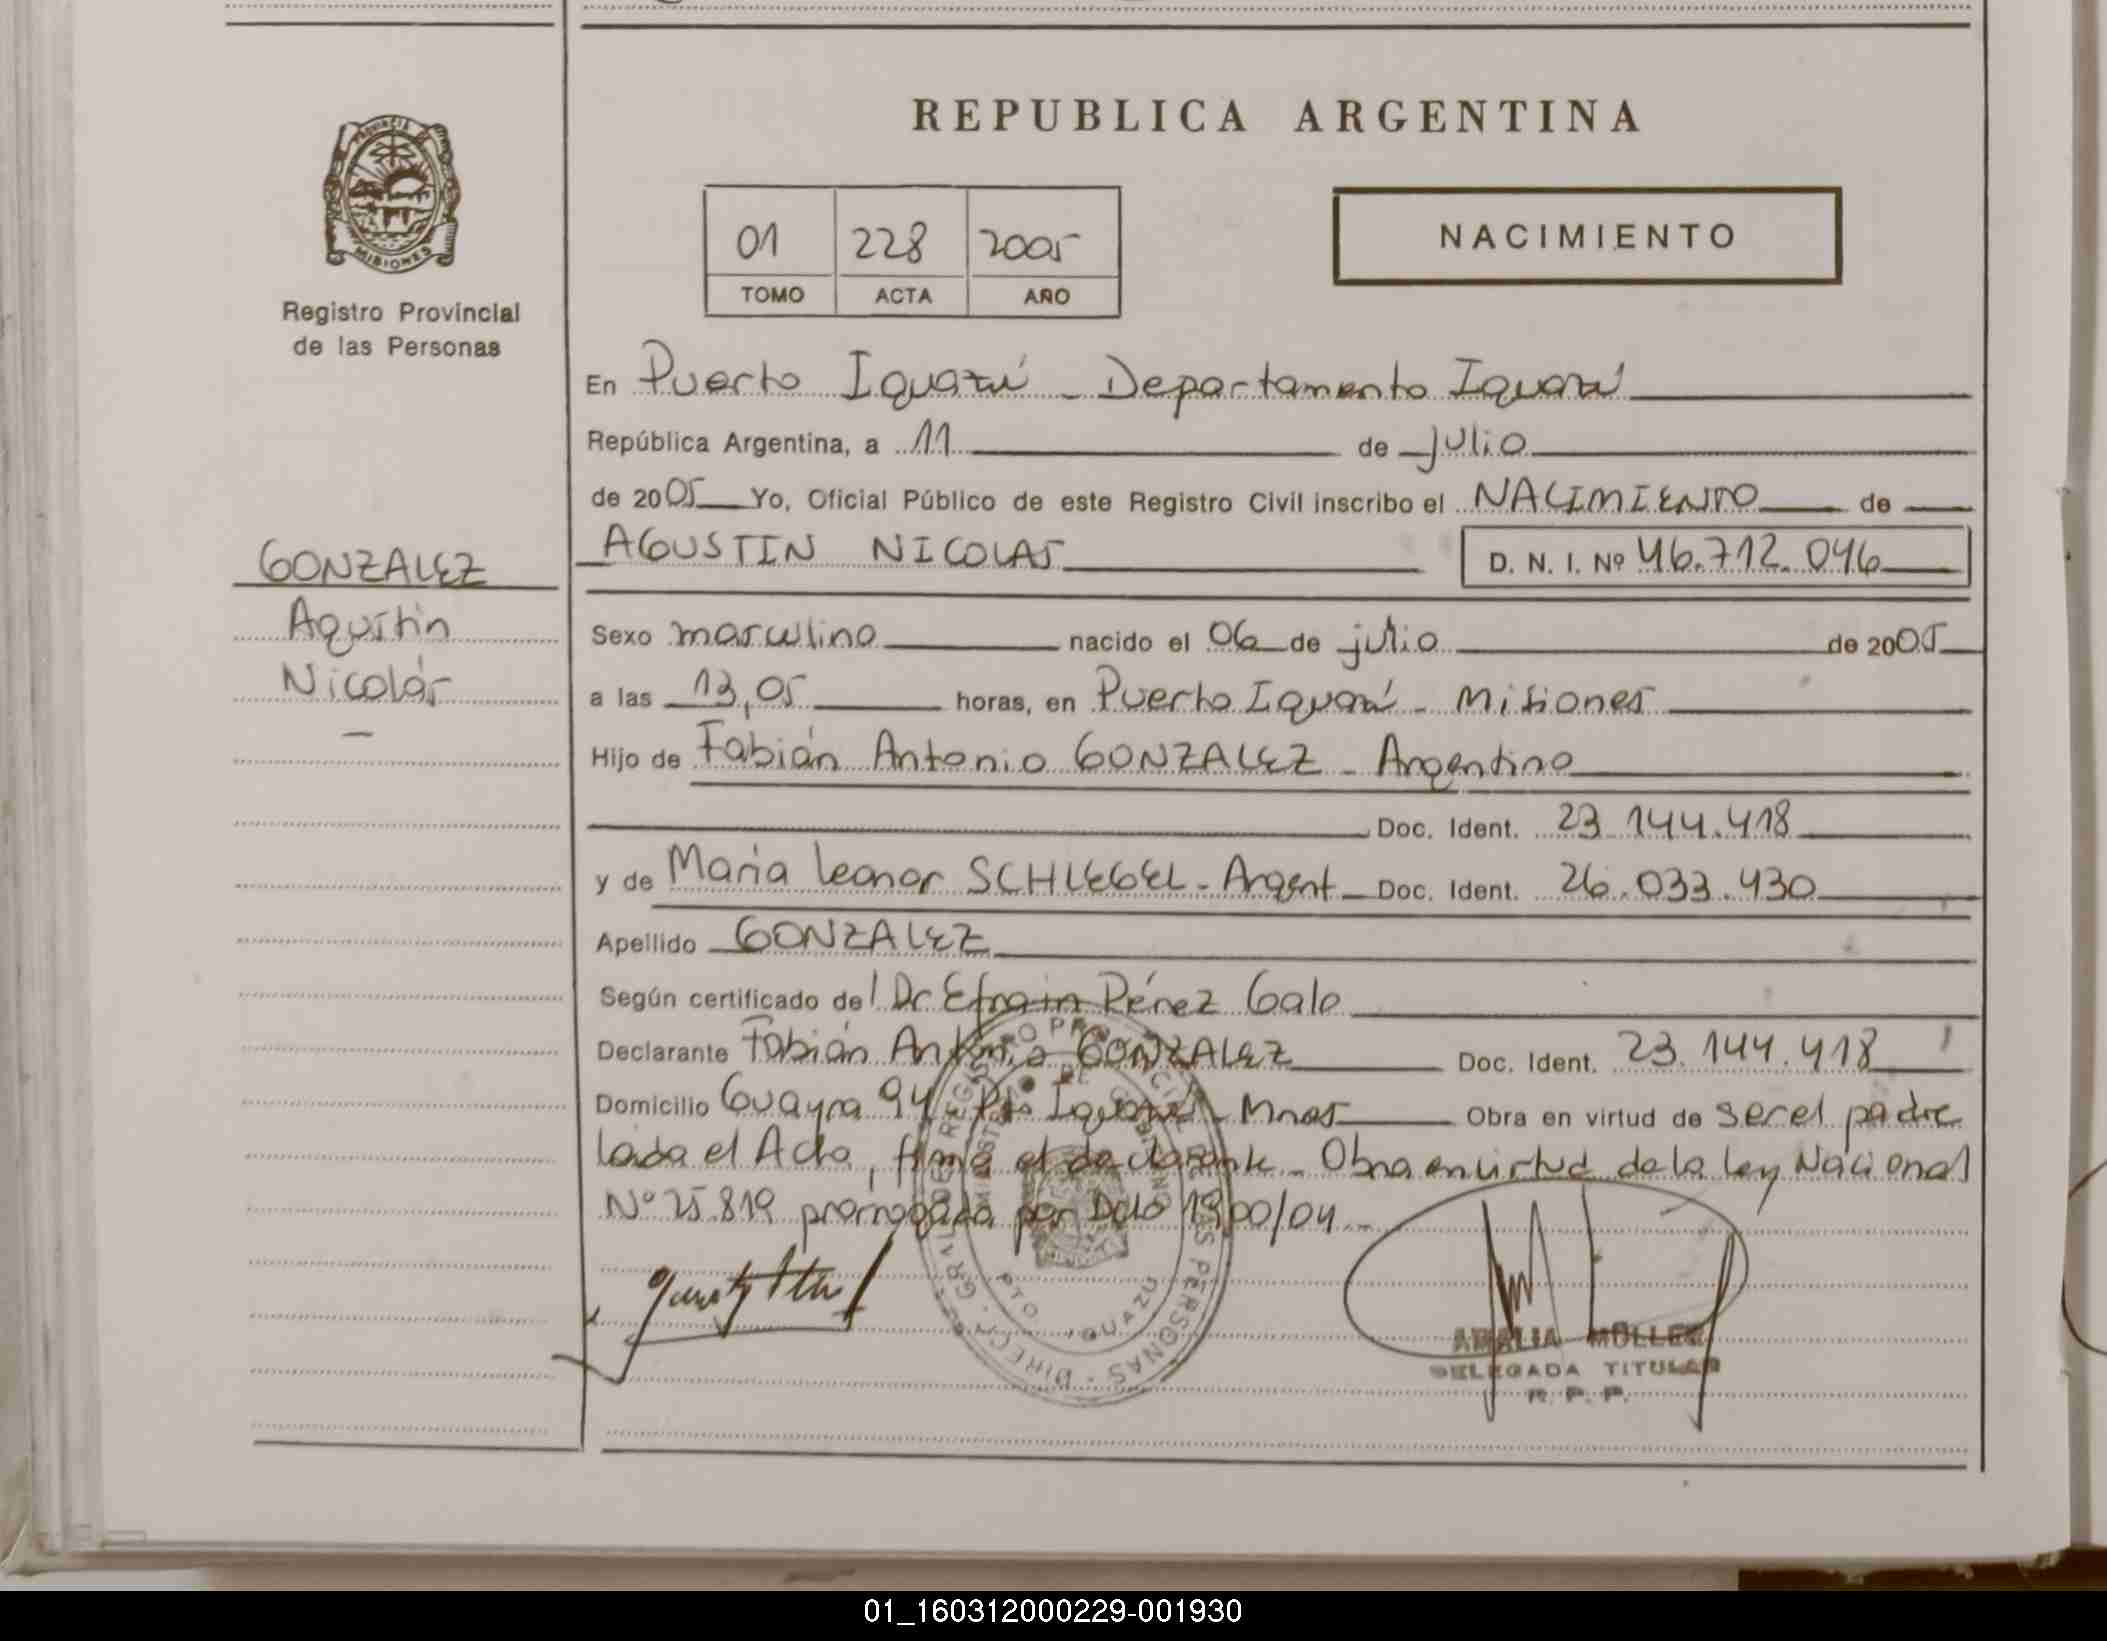 REPUBLICA ARGENTINA
PROVINCIA DE
MISIONES
Registro Provincial
de las Personas
01 228 2005
TOMO ACTA AÑO
NACIMIENTO
En Puerto Iguazú - Departamento Iguazú
República Argentina, a 11 de julio
de 2005 Yo, Oficial Público de este Registro Civil inscribo el NACIMIENTO de
GONZALEZ
Agustín
Nicolás
AGUSTIN NICOLAS
D. N. I. Nº 46.712.046
Sexo masculino nacido el 06 de julio de 2005
a las 13,05 horas, en Puerto Iguazú - Misiones
Hijo de Fabián Antonio GONZALEZ - Argentino
Doc. Ident. 23.144.418
y de Maria Leonor SCHLEGEL - Argent Doc. Ident. 26.033.430
Apellido GONZALEZ
Según certificado del Dr Efrain Pérez Galo
Declarante Fabián Antonio GONZALEZ Doc. Ident. 23.144.418
Domicilio Guayra 94 Pto Iguazú - Mnes Obra en virtud de ser el padre
Leída el Acta, firma el declarante - Obra en virtud de la ley Nacional
Nº 25.819 prorrogada por Dcto 1900/04
DIREC. GRAL. DE REGISTRO PROVINCIAL DE LAS PERSONAS
MINISTERIO DE GOBIERNO
PTO IGUAZU
AMALIA MÜLLER
DELEGADA TITULAR
R. P. P.
01_160312000229-001930